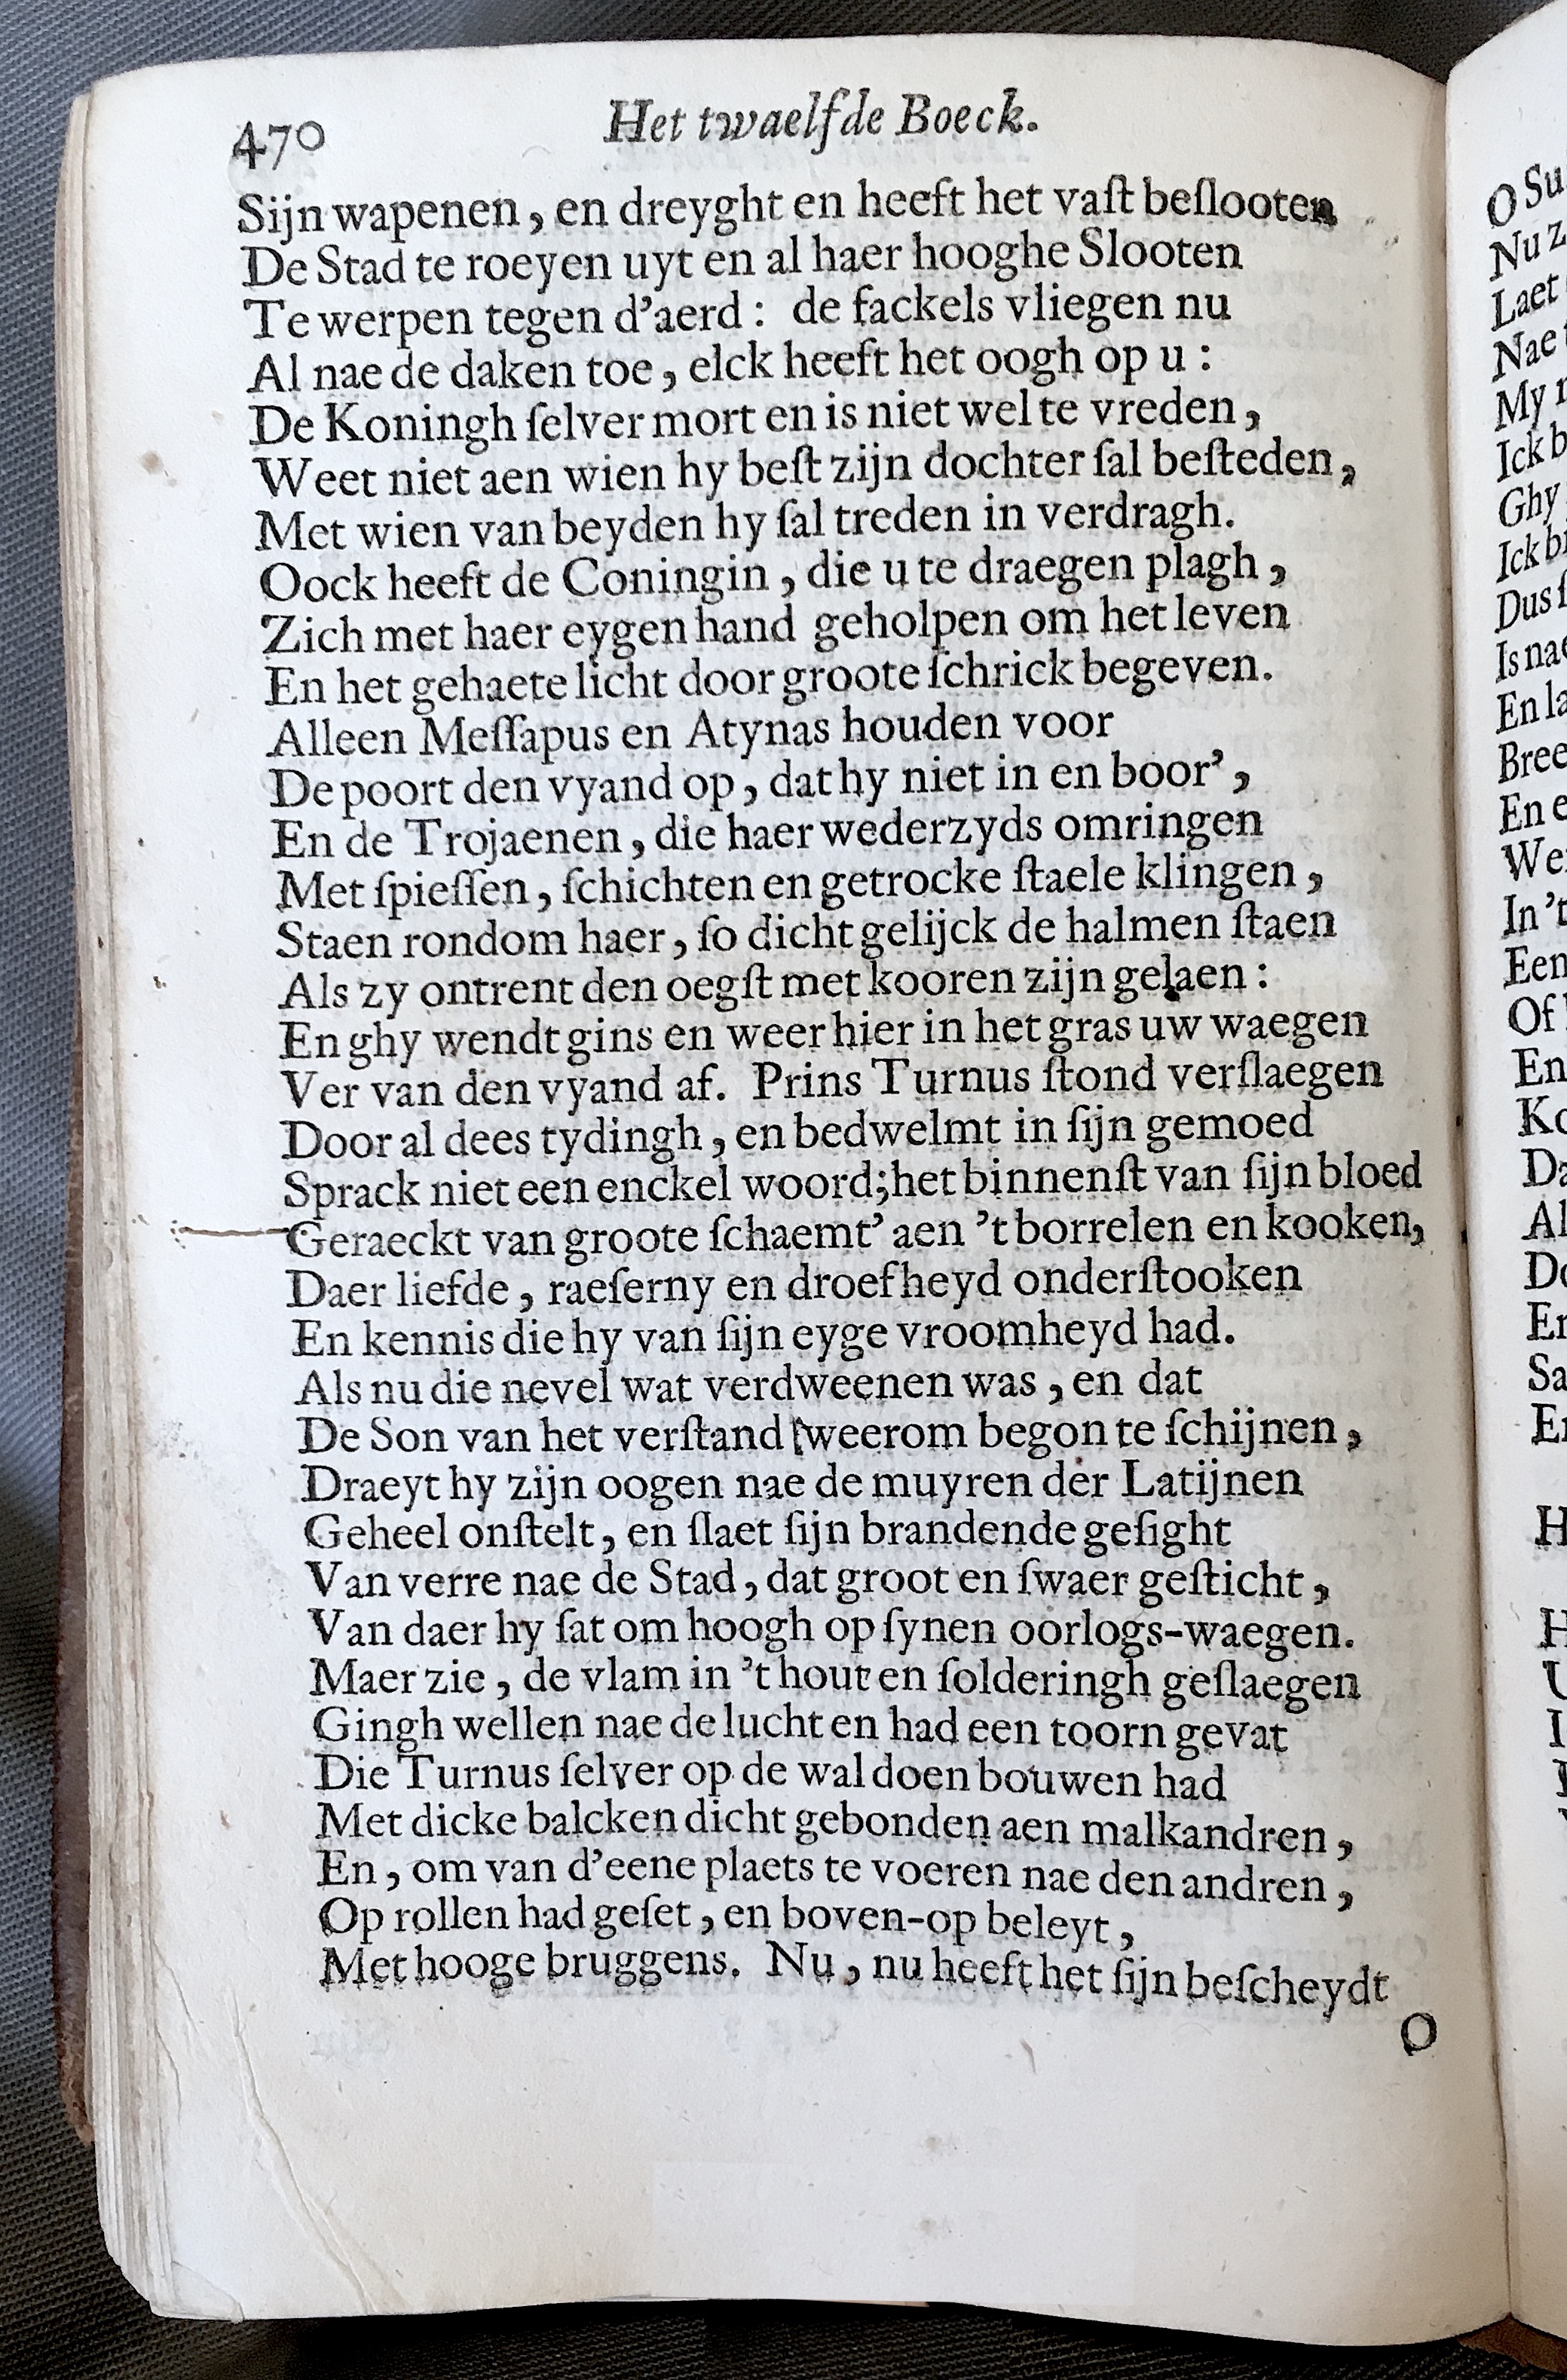 470 Het twaelfde Boeck.
Sijn wapenen, en dreyght en heeft het vaſt beſlooten
De Stad te roeyen uyt en al haer hooghe Slooten
Te werpen tegen d'aerd: de fackels vliegen nu
Al nae de daken toe, elck heeft het oogh op u:
De Koningh ſelver mort en is niet wel te vreden,
Weet niet aen wien hy beſt zijn dochter ſal beſteden,
Met wien van beyden hy ſal treden in verdragh.
Oock heeft de Coningin, die u te draegen plagh,
Zich met haer eygen hand geholpen om het leven
En het gehaete licht door groote ſchrick begeven.
Alleen Meſſapus en Atynas houden voor
De poort den vyand op, dat hy niet in en boor',
En de Trojaenen, die haer wederzyds omringen
Met ſpieſſen, ſchichten en getrocke ſtaele klingen,
Staen rondom haer, ſo dicht gelijck de halmen ſtaen
Als zy ontrent den oegſt met kooren zijn gelaen:
En ghy wendt gins en weer hier in het gras uw waegen
Ver van den vyand af. Prins Turnus ſtond verſlaegen
Door al dees tydingh, en bedwelmt in ſijn gemoed
Sprack niet een enckel woord; het binnenſt van ſijn bloed
Geraeckt van groote ſchaemt' aen 't borrelen en kooken,
Daer liefde, raeſerny en droefheyd onderſtooken
En kennis die hy van ſijn eyge vroomheyd had.
Als nu die nevel wat verdweenen was, en dat
De Son van het verſtand weerom begon te ſchijnen,
Draeyt hy zijn oogen nae de muyren der Latijnen
Geheel onſtelt, en ſlaet ſijn brandende geſight
Van verre nae de Stad, dat groot en ſwaer geſticht,
Van daer hy ſat om hoogh op ſynen oorlogs-waegen.
Maer zie, de vlam in 't hout en ſolderingh geſlaegen
Gingh wellen nae de lucht en had een toorn gevat
Die Turnus ſelver op de wal doen bouwen had
Met dicke balcken dicht gebonden aen malkandren,
En, om van d'eene plaets te voeren nae den andren,
Op rollen had geſet, en boven-op beleyt,
Met hooge bruggens. Nu, nu heeft het ſijn beſcheydt
O
O Su
Nu z
Laet
Nae
My
Ick b
Ghy
Ick
Dus
Is nae
En la
Bree
En e
We
In 't
Een
Of
En
Ko
Da
Al
Do
En
Sa
En
H
H